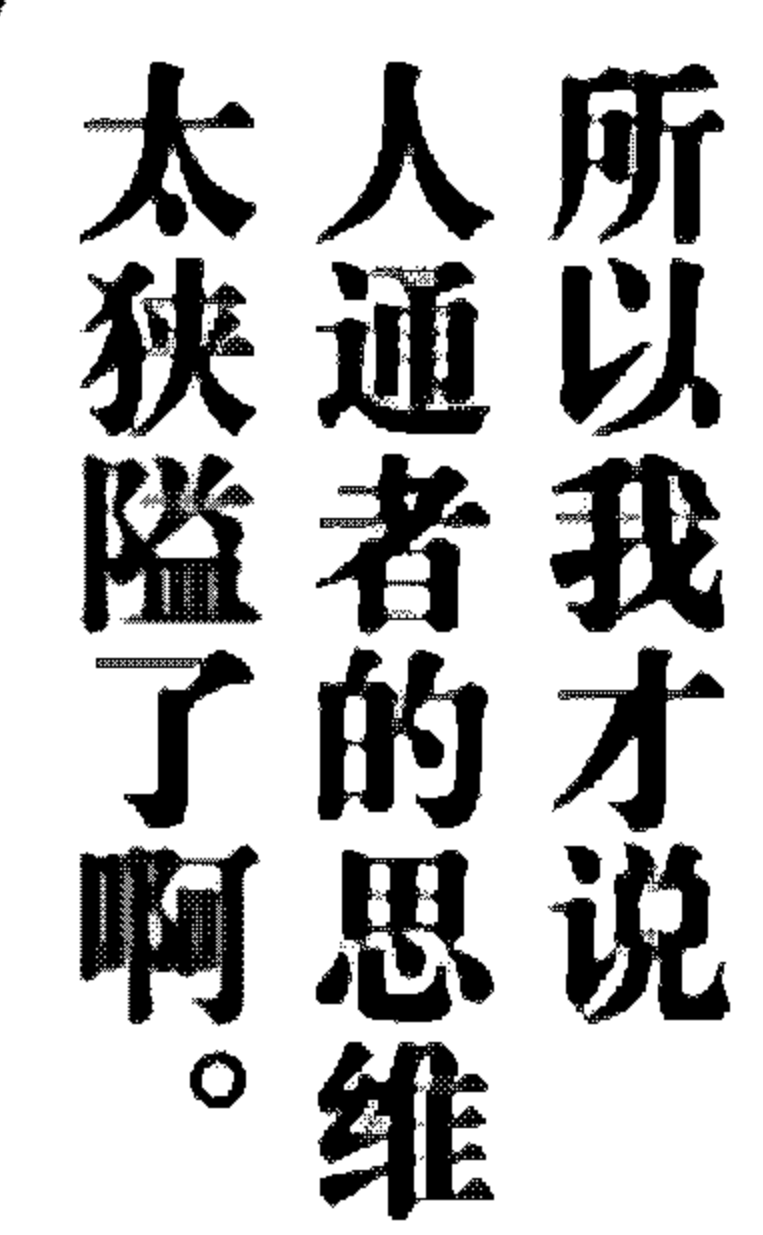 所以我才说
人通者的思维
太狭隘了啊。